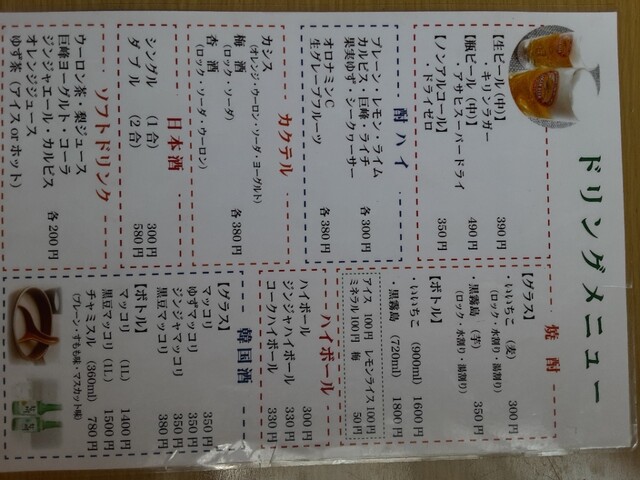 ドリンクメニュー
【生ビール（中）】 390円
・キリンラガー
【瓶ビール（中）】 490円
・アサヒスーパードライ
【ノンアルコール】 350円
・ドライゼロ
酎ハイ
プレーン・レモン・ライム
カルピス・巨峰・ライチ
果実ゆず・シークヮーサー 各300円
オロナミンC
生グレープフルーツ 各380円
カクテル
カシス
（オレンジ・ウーロン・ソーダ・ヨーグルト）
梅酒
（ロック・ソーダ）
杏酒
（ロック・ソーダ・ウーロン） 各380円
日本酒
シングル（1合） 300円
ダブル（2合） 580円
ソフトドリンク
ウーロン茶・梨ジュース
巨峰ヨーグルト・コーラ
ジンジャエール・カルピス
オレンジジュース
ゆず茶（アイスorホット） 各200円
焼酎
【グラス】
・いいちこ（麦） 300円
（ロック・水割り・湯割り）
・黒霧島（芋） 350円
（ロック・水割り・湯割り）
【ボトル】
・いいちこ（900ml） 1600円
・黒霧島（720ml） 1800円
アイス 100円 レモンライス 100円
ミネラル 100円 梅 50円
ハイボール
ハイボール 300円
ジンジャハイボール 330円
コークハイボール 330円
韓国酒
【グラス】
マッコリ 350円
ゆずマッコリ 350円
ジンジャマッコリ 350円
黒豆マッコリ 380円
【ボトル】
マッコリ（1L） 1400円
黒豆マッコリ（1L） 1500円
チャミスル（360ml） 780円
（プレーン・すもも味・マスカット味）